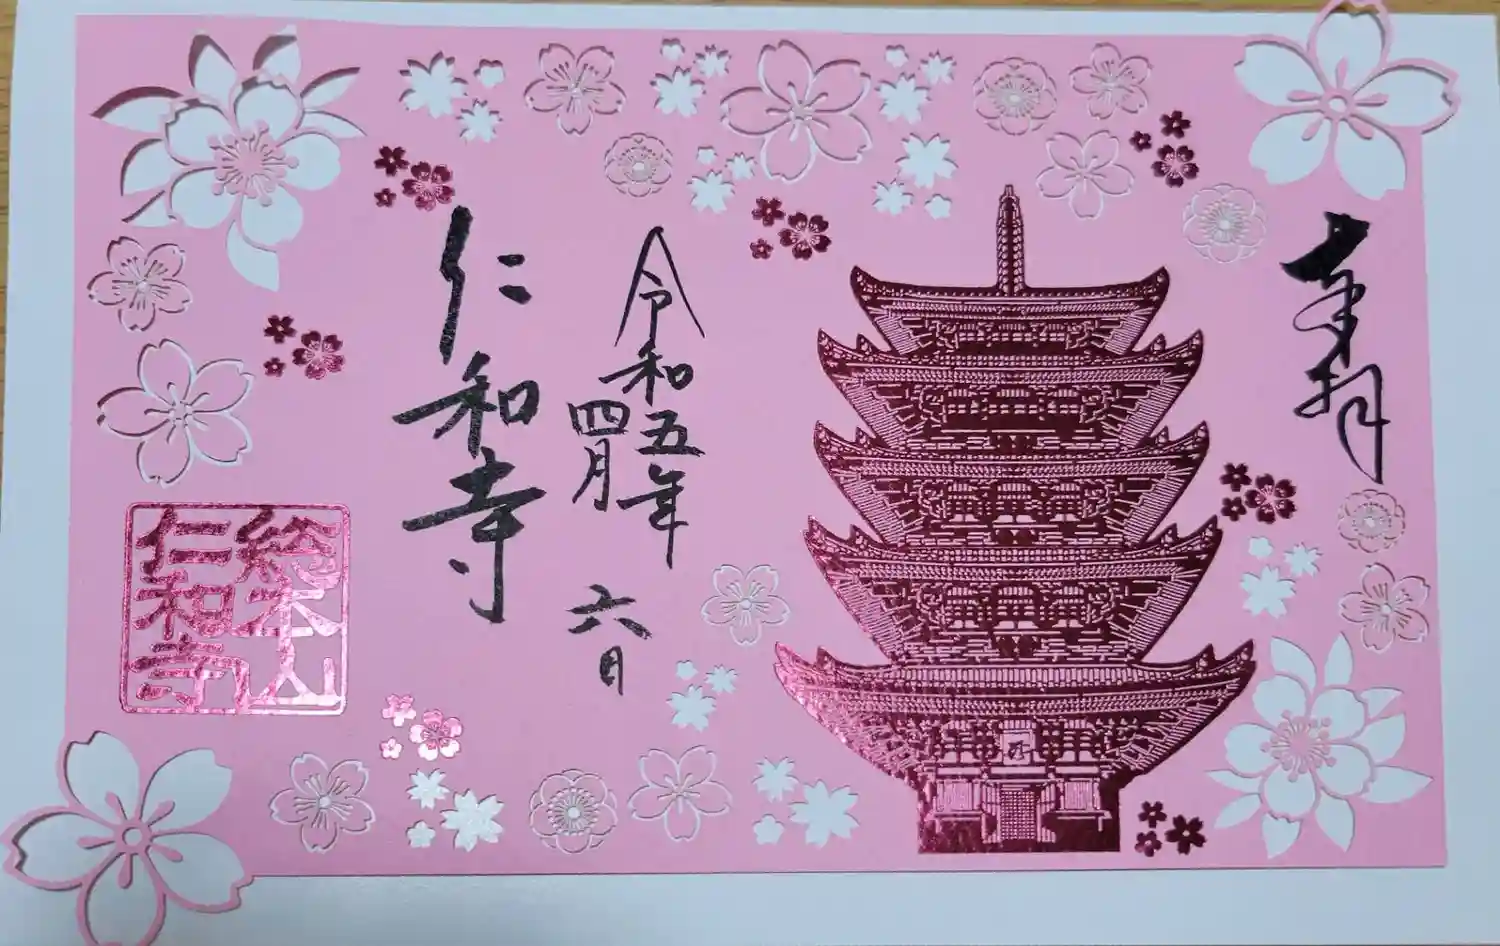 奉拝
令和五年
四月六日
仁和寺
総本山
仁和寺